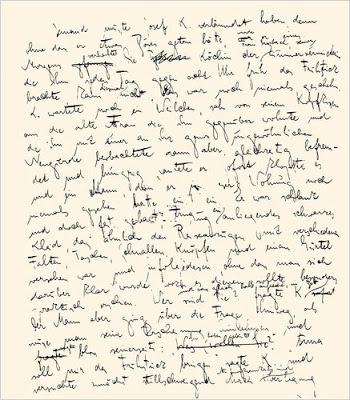 Jemand mußte Josef K. verleumdet haben denn
ohne daß er etwas Böses getan hätte, eines
Morgens Die Köchin der Zimmervermieterin
die ihm jeden Tag gegen acht Uhr früh das Frühstück
brachte kam diesmal nicht. Das war noch niemals geschehn
K. wartete noch ein Weilchen sah von seinem Kopfkissen
aus die alte Frau die ihm gegenüber wohnte und
die ihn mit einer an ihr ganz ungewöhnlichen
Neugierde beobachtete dann aber, gleichzeitig befrem-
det und hungrig, läutete er. Sofort klopfte es
und ein Mann den er in Wohnung noch
niemals gesehen hatte trat ein. er war schlank
und doch fest gebaut, er trug ein anliegendes schwarzes
Kleid, das ähnlich den Reiseanzügen mit verschiedenen
Falten Taschen, Schnallen, Knöpfen und einem Gürtel
versehen war und infolgedessen ohne daß man sich
darüber klar wurde wozu es dienen sollte besonders
praktisch erschien. "Wer sind Sie?" fragte K.
Der Mann aber ging über die Frage hinweg als
müsse man seine Erscheinung hinnehmen und
sagte bloß seinerseits: Anna
soll mir das Frühstück bringen" sagte K. und
versuchte zunächst stillschweigend durch Überlegung